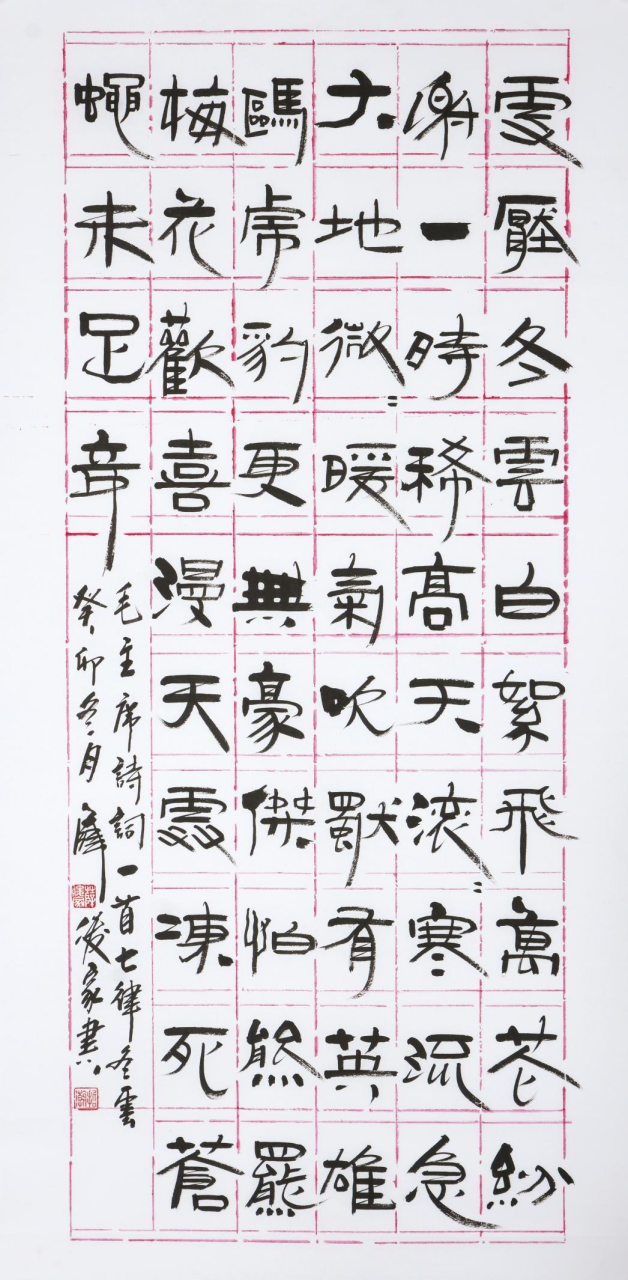 雪壓冬雲白絮飛萬花紛
謝一時稀高天滚〻寒流急
大地微〻暖氣吹獨有英雄
驅虎豹更無豪傑怕熊羆
梅花歡喜漫天雪凍死蒼
蠅未足奇
毛主席詩詞一首七律冬雲
癸卯冬月 家書